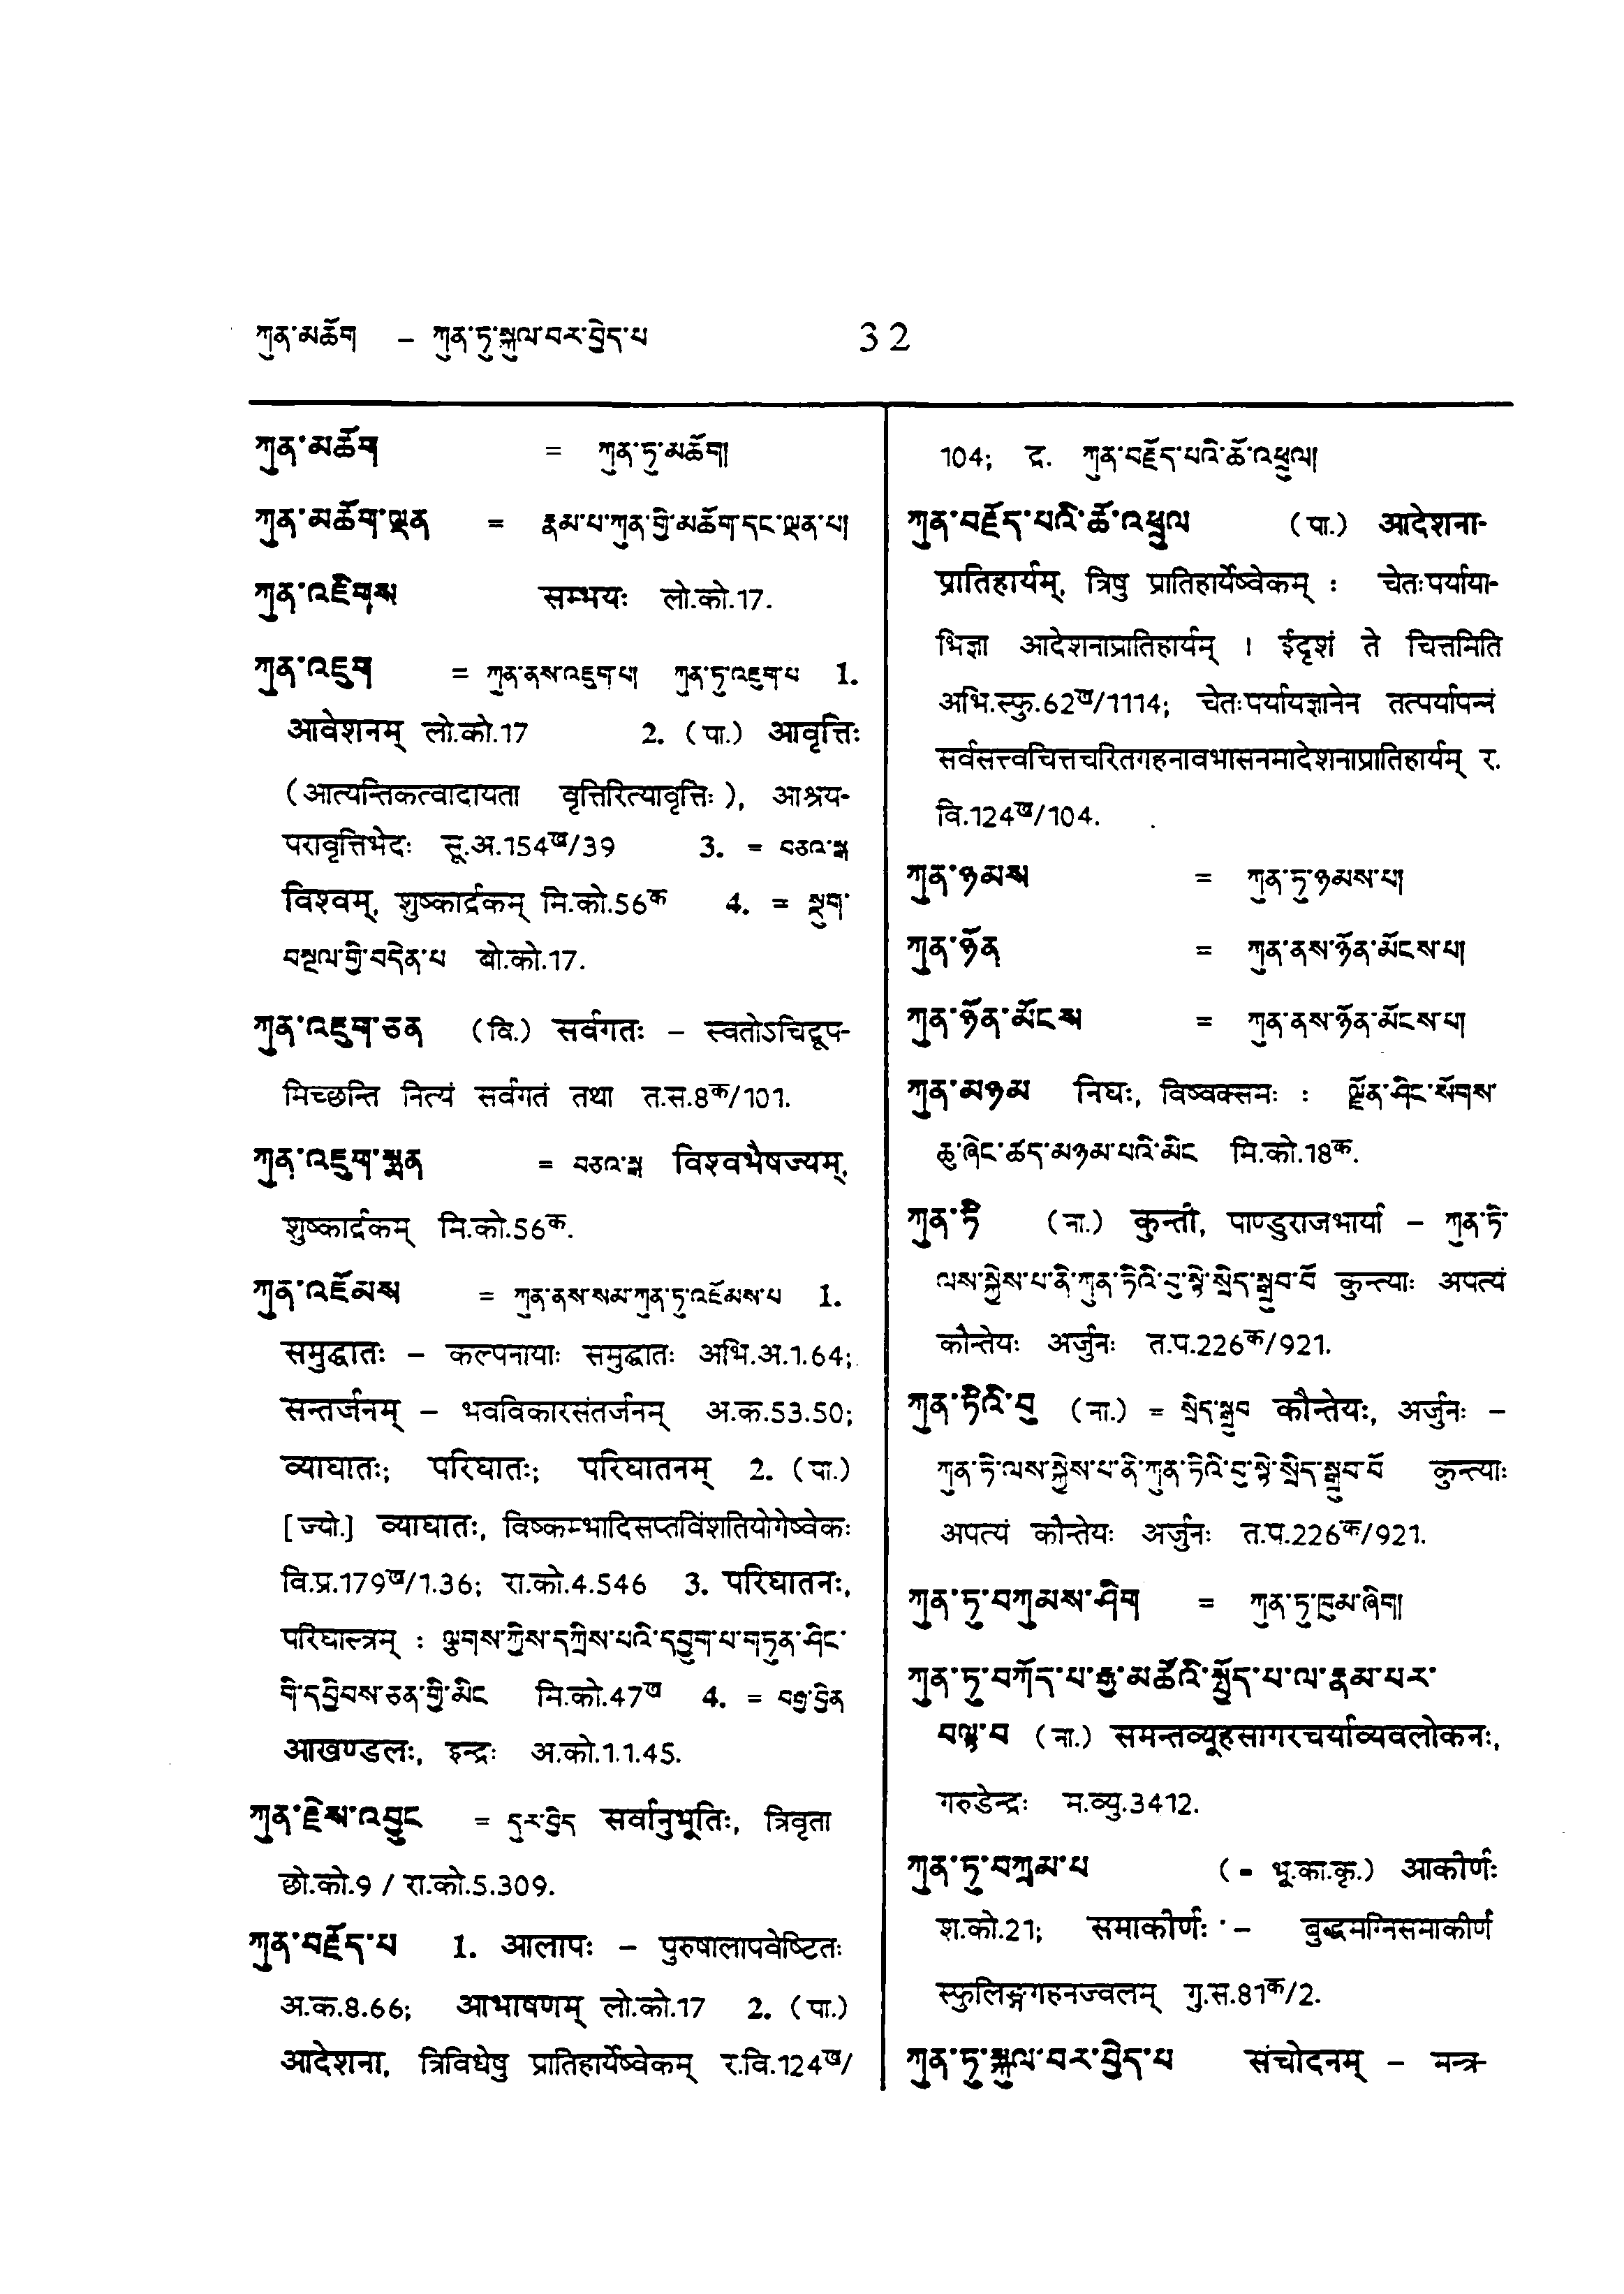 ཀུན་མཆོག – ཀུན་ཏུ་སྐུལ་བར་བྱེད་པ 32
ཀུན་མཆོག = ཀུན་ཏུ་མཆོག།
ཀུན་མཆོག་ལྡན = རྣམ་པ་ཀུན་གྱི་མཆོག་དང་ལྡན་པ།
ཀུན་འཇིགས सम्भयः लो.को.17.
ཀུན་འཇུག = ཀུན་ནས་འཇུག་པ། ཀུན་ཏུ་འཇུག་པ 1.
आवेशनम् लो.को.17 2. (पा.) आवृत्तिः
(आत्यन्तिकत्वादायता वृत्तिरित्यावृत्तिः), आश्रय-
परावृत्तिभेदः सू.अ.154ख/39 3. = བཅའ་སྒ
विश्वम्, शुष्कार्द्रकम् मि.को.56क 4. = སྡུག་
བསྔལ་གྱི་བདེན་པ बो.को.17.
ཀུན་འཇུག་ཅན (वि.) सर्वगतः – स्वतोऽचिद्रूप-
मिच्छन्ति नित्यं सर्वगतं तथा त.स.8क/101.
ཀུན་འཇུག་སྨན = བཅའ་སྒ विश्वभैषज्यम्,
शुष्कार्द्रकम् मि.को.56क.
ཀུན་འཇོམས = ཀུན་ནས་སམ་ཀུན་ཏུ་འཇོམས་པ 1.
समुद्घातः – कल्पनायाः समुद्घातः अभि.अ.1.64;
सन्तर्जनम् – भवविकारसंतर्जनम् अ.क.53.50;
व्याघातः; परिघातः; परिघातनम् 2. (पा.)
[ज्यो.] व्याघातः, विष्कम्भादिसप्तविंशतियोगेष्वेकः
वि.प्र.179ख/1.36; रा.को.4.546 3. परिघातनः,
परिघास्त्रम् : ལྕགས་ཀྱིས་དཀྲིས་པའི་དབྱུག་པ་གཏུན་ཤིང་
གི་དབྱིབས་ཅན་གྱི་མིང मि.को.47ख 4. = བརྒྱ་བྱིན
आखण्डलः, इन्द्रः अ.को.1.1.45.
ཀུན་རྗེས་འབྱུང = དུར་བྱིད सर्वानुभूतिः, त्रिवृता
छो.को.9 / रा.को.5.309.
ཀུན་བརྗོད་པ 1. आलापः – पुरुषालापवेष्टितः
अ.क.8.66; आभाषणम् लो.को.17 2. (पा.)
आदेशना, त्रिविधेषु प्रातिहार्येष्वेकम् र.वि.124ख/
104; द्र. ཀུན་བརྗོད་པའི་ཆོ་འཕྲུལ།
ཀུན་བརྗོད་པའི་ཆོ་འཕྲུལ (पा.) आदेशना-
प्रातिहार्यम्, त्रिषु प्रातिहार्येष्वेकम् : चेतःपर्याया-
भिज्ञा आदेशनाप्रातिहार्यम् । ईदृशं ते चित्तमिति
अभि.स्फु.62ख/1114; चेतःपर्यायज्ञानेन तत्पर्यापन्नं
सर्वसत्त्वचित्तचरितगहनावभासनमादेशनाप्रातिहार्यम् र.
वि.124ख/104.
ཀུན་ཉམས = ཀུན་ཏུ་ཉམས་པ།
ཀུན་ཉོན = ཀུན་ནས་ཉོན་མོངས་པ།
ཀུན་ཉོན་མོངས = ཀུན་ནས་ཉོན་མོངས་པ།
ཀུན་མཉམ निघः, विष्वक्समः : ལྗོན་ཤིང་སོགས་
ཆུ་ཞེང་ཚད་མཉམ་པའི་མིང मि.को.18क.
ཀུན་ཏི (ना.) कुन्ती, पाण्डुराजभार्या – ཀུན་ཏི་
ལས་སྐྱེས་པ་ནི་ཀུན་ཏིའི་བུ་སྟེ་སྲིད་སྒྲུབ་བོ कुन्त्याः अपत्यं
कौन्तेयः अर्जुनः त.प.226क/921.
ཀུན་ཏིའི་བུ (ना.) = སྲིད་སྒྲུབ कौन्तेयः, अर्जुनः –
ཀུན་ཏི་ལས་སྐྱེས་པ་ནི་ཀུན་ཏིའི་བུ་སྟེ་སྲིད་སྒྲུབ་བོ कुन्त्याः
अपत्यं कौन्तेयः अर्जुनः त.प.226क/921.
ཀུན་ཏུ་བཀུམས་ཤིག = ཀུན་ཏུ་ཁུམ་ཞིག།
ཀུན་ཏུ་བཀོད་པ་རྒྱ་མཚོའི་སྤྱོད་པ་ལ་རྣམ་པར་
བལྟ་བ (ना.) समन्तव्यूहसागरचर्याव्यवलोकनः,
गरुडेन्द्रः म.व्यु.3412.
ཀུན་ཏུ་བཀྲམ་པ (- भू.का.कृ.) आकीर्णः
श.को.21; समाकीर्णः – बुद्धमग्निसमाकीर्णं
स्फुलिङ्गगहनज्वलम् गु.स.81क/2.
ཀུན་ཏུ་སྐུལ་བར་བྱེད་པ संचोदनम् – मन्त्र-